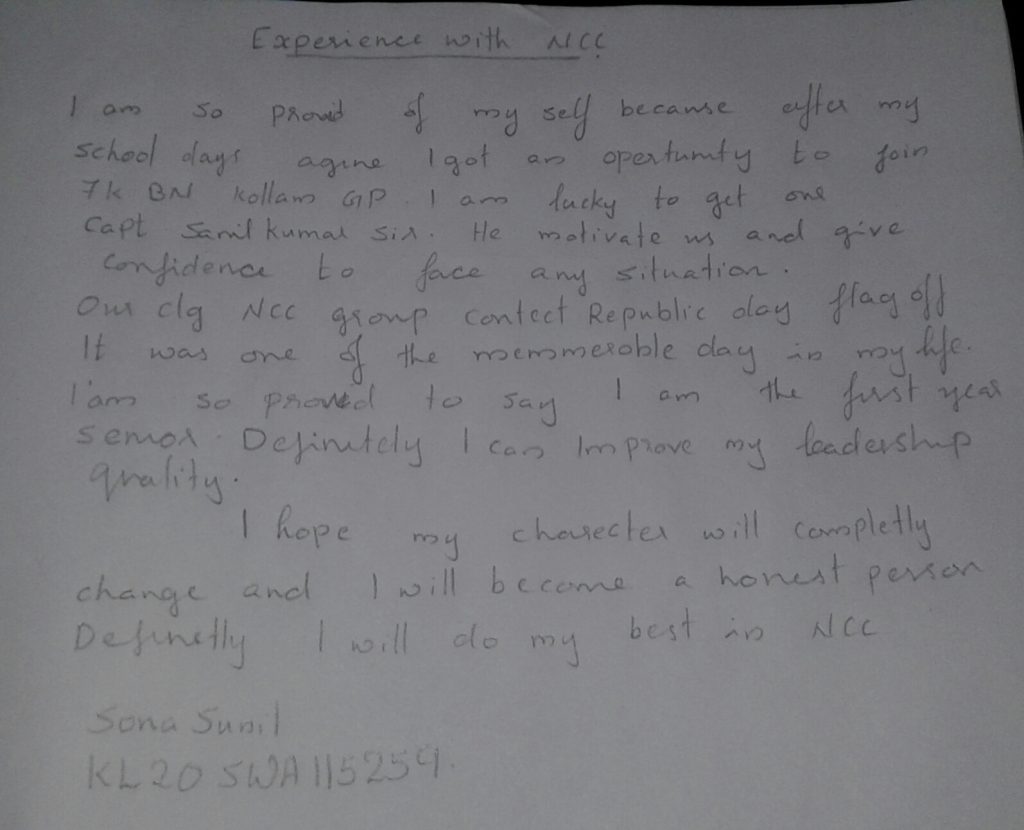 Experience with NCC
I am so proud of my self because after my
school days agine I got an opertunity to join
7k BN kollam GP. I am lucky to get one
Capt Sanil kumar sir. He motivate us and give
confidence to face any situation.
Our clg NCC group contect Republic day flag off
It was one of the memmerable day in my life.
I am so proud to say I am the first year
Senior. Definitely I can Improve my leadership
quality.
I hope my charecter will completly
change and I will become a honest person
Definetly I will do my best in NCC
Sona Sunil
KL20 SWA115259.